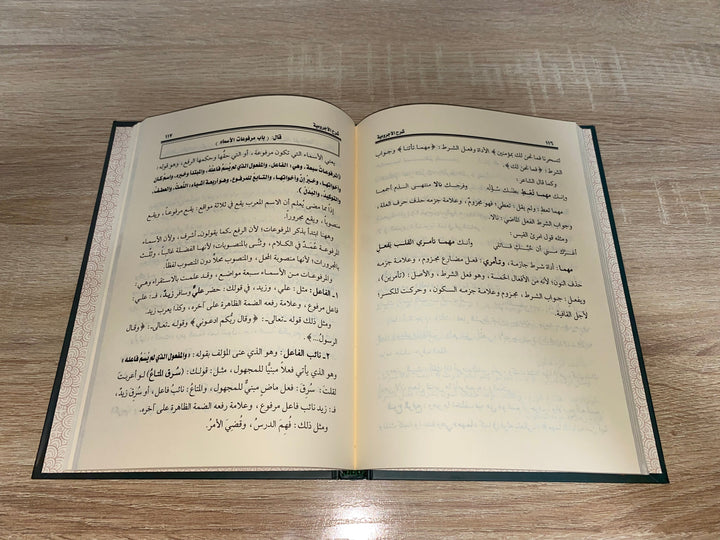 شرح الآجرومية ١١٦
لتسحرنا فما نحن لك بمؤمنين ﴾ الأداة وفعل الشرط: ﴿ مهما تأتنا ﴾ وجواب
الشرط: ﴿ فما نحن لك ﴾.
وكما قال الشاعر:
وإنك مهما تُعطِ بطنك سُؤلَه وفرجك نالا منتهى الذم أجمعا
مهما تعط: ولم يقل: تعطي؛ فهو مجزومٌ، وعلامة جزمه حذف حرف العلة،
وجواب الشرط الفعل الماضي: نالا.
ومثله قول امرئ القيس:
أغرَّكِ مني أن حُبَّكِ قاتلي وأنك مهما تأمري القلب يفعل
مهما: أداة شرط جازمة، وتأمري: فعل مضارع مجزوم، وعلامة جزمه
حذف النون؛ لأنه من الأفعال الخمسة، وهو فعل الشرط، والأصل: (تأمرين)،
ويفعل: جواب الشرط، مجزوم وعلامة جزمه السكون، وحركت للكسر
لأجل القافية.
شرح الآجرومية ١١٧
قال: (باب مرفوعات الأسماء)
يعني: الأسماء التي تكون مرفوعة، أو التي حقُّها وحكمها الرفع، وهو قوله:
(المرفوعات سبعة، وهي: الفاعل، والمفعول الذي لم يُسَمَّ فاعلُه، والمبتدأ وخبره، واسم كان
وأخواتها، وخبر إنّ وأخواتها، والتابع للمرفوع، وهو أربعة أشياء: النَّعتُ، والعطف،
والتوكيد، والبدل)
إذًا مما مضى يُعلم أن الاسم المعرب يقع في ثلاثة مواقع: يقع مرفوعًا، ويقع
منصوبًا، ويقع مجرورًا.
وههنا ابتدأ بذكر المرفوعات؛ لأن الرفع ـ كما يقولون ـ أشرف، ولأن الأسماء
المرفوعة عُمَدٌ في الكلام، وثنَّى بالمنصوبات؛ لأنها الفضلة غالبًا، وثلَّث
بالمجرورات؛ لأنها منصوبة المحل، والمنصوب محلًا دون المنصوب لفظًا.
والمرفوعات من الأسماء سبعة مواضع، وقد علمت بالاستقراء وهي:
١ـ الفاعل: مثل: علي، وزيد، في قولك: حضر عليٌّ وسافر زيدٌ، فـ: علي
فاعل مرفوع، وعلامة رفعه الضمة الظاهرة على آخره، وكذا يعرب زيد.
ومثل ذلك قوله ـ تعالى ـ: ﴿ وقال ربُّكم ادعوني ﴾ وقوله ـ تعالى ـ: ﴿ وقال
الرسولُ... ﴾.
٢ـ نائب الفاعل: وهو الذي عنى المؤلف بقوله: «والمفعول الذي لم يُسَمَّ فاعله»
وهو الذي يأتي فعلًا مبنيًّا للمجهول، مثل: قولك: (سُرق المتاعُ) لو أعربت
لقلتَ: سُرق: فعل ماضٍ مبنيٌّ للمجهول، والمتاعُ: نائبُ فاعل، أو سُرق زيدٌ،
فـ: زيد نائب فاعل مرفوع، وعلامة رفعه الضمة الظاهرة على آخره.
ومثل ذلك: فُهِمَ الدرسُ، وقُضِيَ الأمرُ.